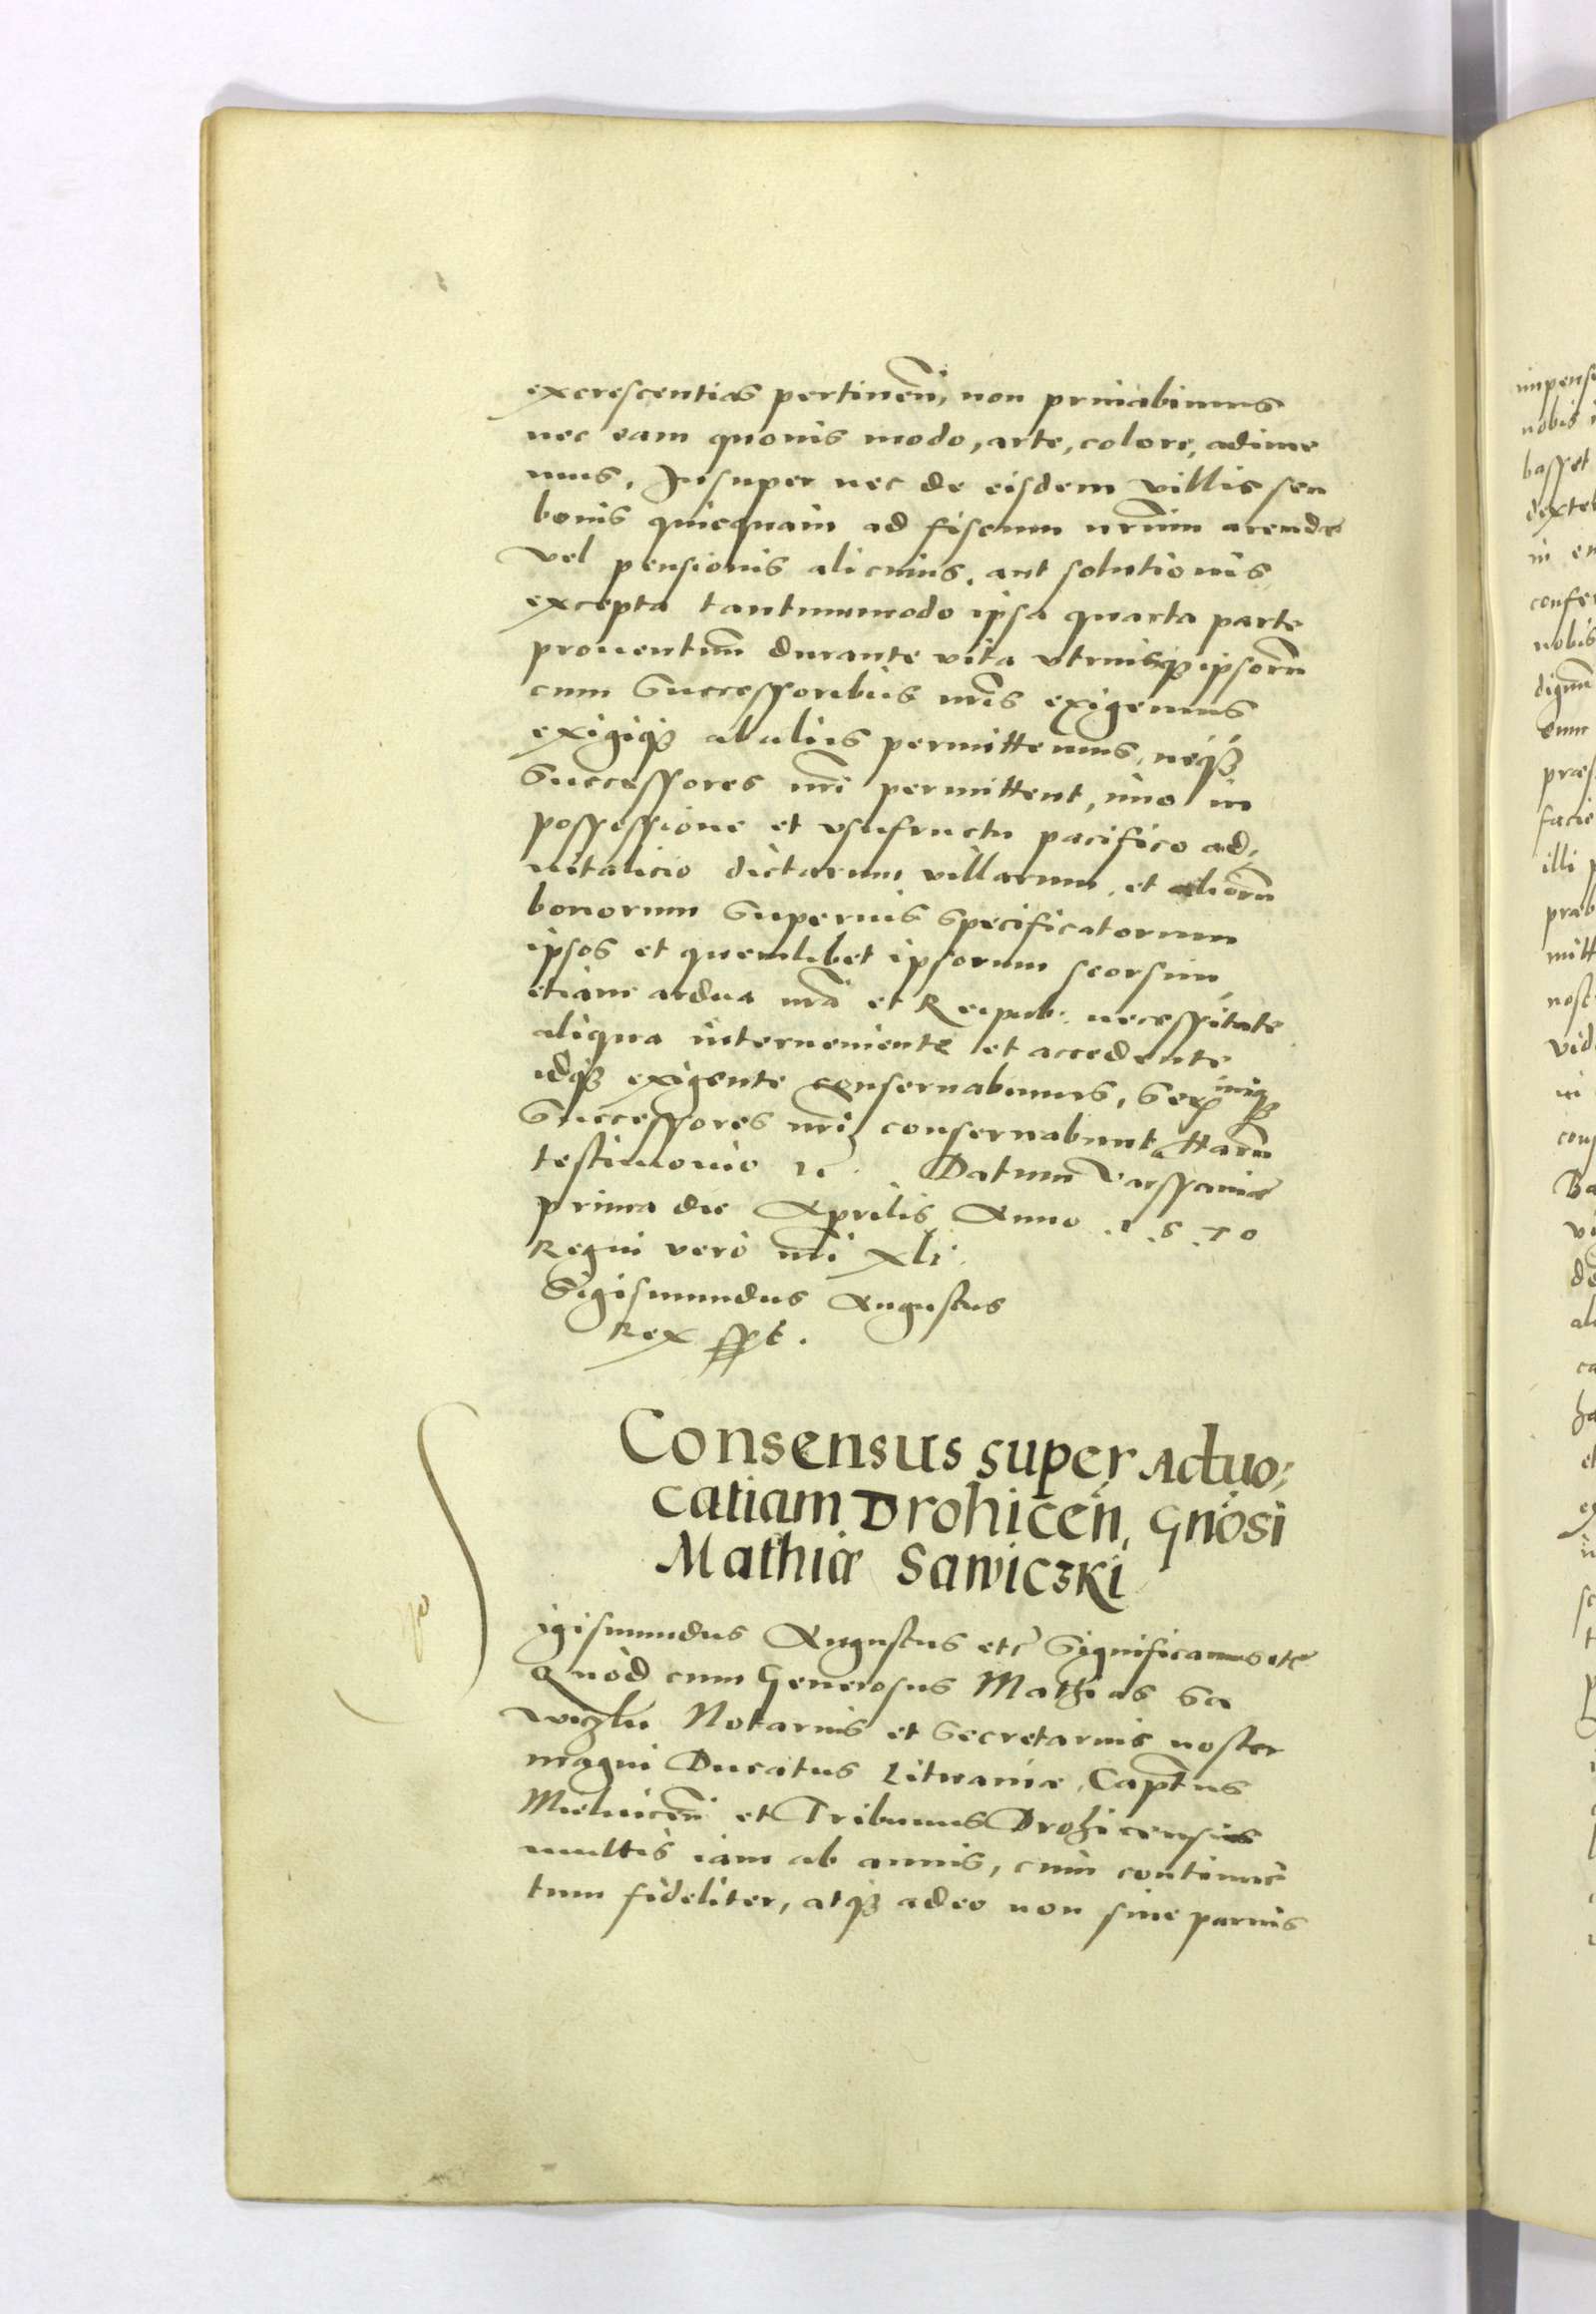 excrescentias pertineñ, non priuabimus
nec eam quouis modo, arte, colore, adime
mus. Insuper nec de eisdem villis seu
bonis quicquam ad fiscum nr̃um arendæ
vel pensionis alicuius, aut solutionis
excepta tantummodo ipsa quarta parte
prouentuũ durante vita vtriusq₃ ipsorũ
cum Successoribus nr̃is exigemus
exigiq₃ ab aliis permittemus, neq₃
Successores nr̃i permittent, imo in
possessione et vsufructu pacifico ad,
uitalicio dictarum villarum, et aliorũ
bonorum superius specificatorum
ipsos et quemlibet ipsorum seorsim,
etiam ardua nr̃a et Reipub: necessitate
aliqua interueniente et accedente
idq₃ exigente conseruabimus, Serq₃
Successores nr̃i conseruabunt
testimonio Datum Varssauiæ
prima die Aprilis Anno .1.5.7.0
Regni vero nr̃i xli.
Sigismundus Augustus
Rex sspt.
Consensus super Aduo;
catiam Drohiceñ, Gnõsi
Mathiæ Sawiczki
Sigismundus Augustus etc̃ Significamus etc̃
Quod cum Generosus Mathias Sa
wiczki Notarius et Secretarius noster
magni Ducatus Lituaniæ, Captñus
Mielniceñ et Tribunus Drohicensis
multis iam ab annis, cum continue
tum fideliter, atq₃ adeo non sine paruis
impens
nobis
basset
dexter
in
confer
nobis
dignum
eum
præs
facie
illi
præb
mitt
nost
vid